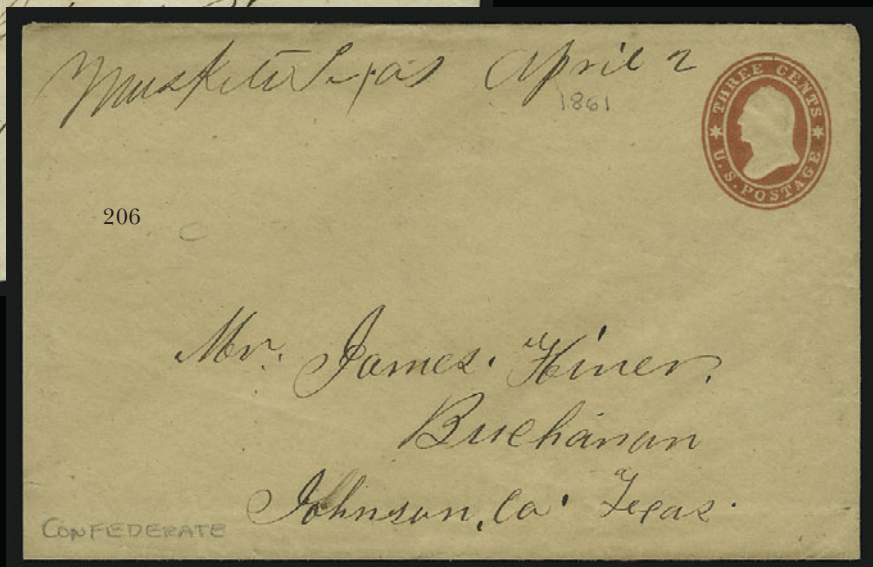 Muskete Texas April 2
1861
THREE CENTS
U.S. POSTAGE
206
Mr. James. Hiner.
Buchanan
Johnson, Co. Texas.
CONFEDERATE